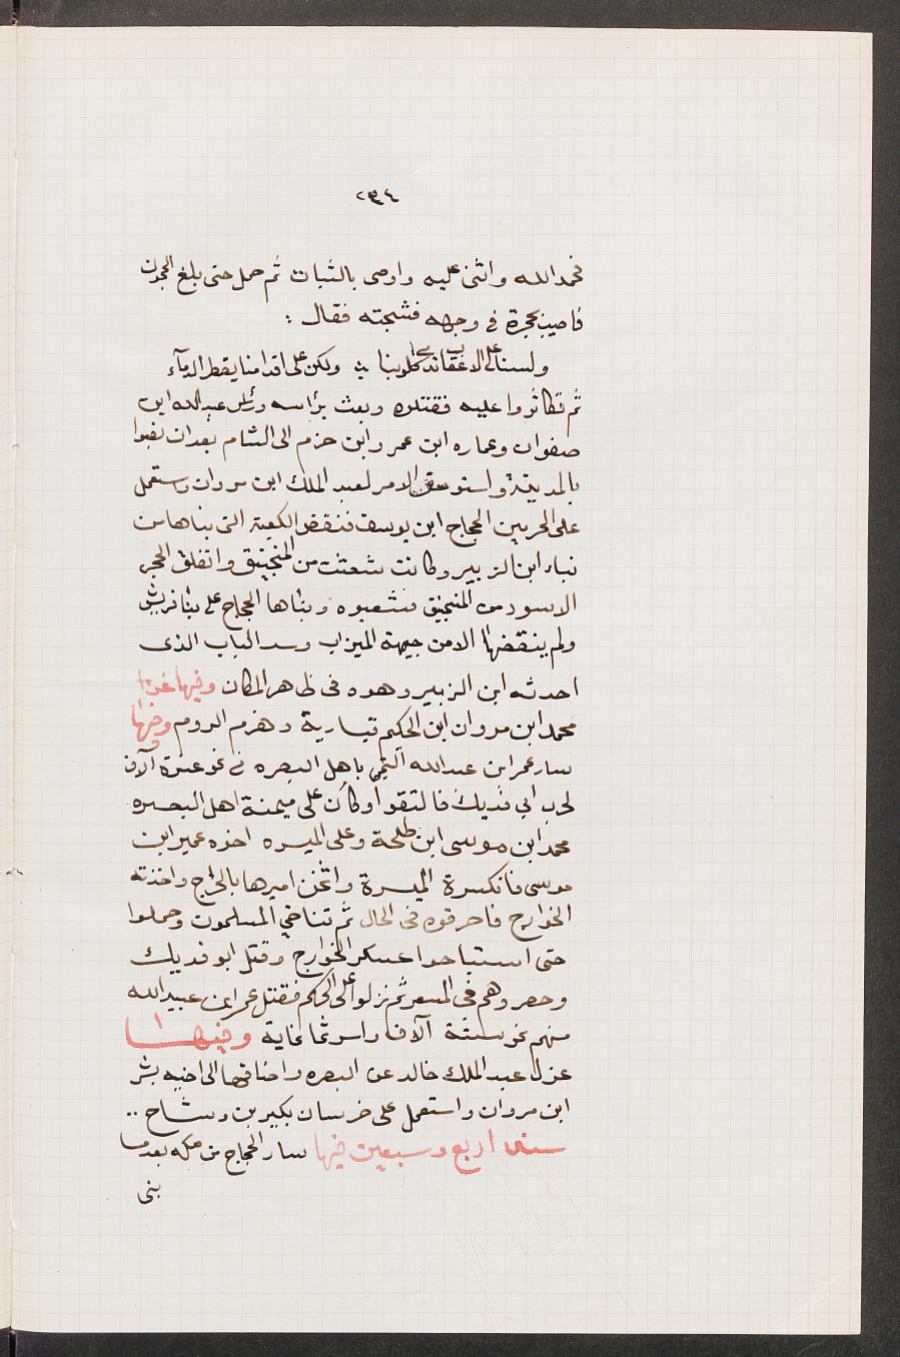 ٢٩٤
فحمد الله واثنى عليه واوصى بالثبات ثم حمل حتى بلغ الحجون
فاصيب بحجرة في وجهه فشجته فقال :
ولسنا على الاعقاب تدمى كلوبنا ؞ ولكن على اقدامنا يقطر الدمآء
ثم تكاثروا عليه فقتلوه وبعث برأسه ورأس عبدالله ابن
صفوان وعماره ابن عمر وابن حزم الى الشام بعد ان نصبوا
بالمدينة واستوسق الامر لعبد الملك ابن مروان واستعمل
على الحرمين الحجاج ابن يوسف فنقض الكعبة التى بناها من
بناء ابن الزبير وكانت شعثت من المنجنيق وانفلق الحجر
الاسود من المنجنيق فشعبوه وبناها الحجاج على بنا قريش
ولم ينقضها الا من جيهة الميزاب وسد الباب الذى
احدثه ابن الزبير وهده فى ظاهر المكان وفيها غزا
محمد ابن مروان ابن الحكم قيسارية وهزم الروم وفيها
سار عمر ابن عبدالله التيمى باهل البصره فى نحو عشرة آلاف
لحرب ابى فديك فالتقوا وكان على ميمنة اهل البصره
محمد ابن موسى ابن طلحة وعلى الميسره اخوه عمير ابن
موسى فانكسرة الميسرة واثخن اميرها بالجراح واخذته
الخوارج فاحرقوه فى الحال ثم تناخى المسلمون وحملوا
حتى استباحوا عسكر الخوارج وقتل ابو فديك
وحصروهم فى المشقر ثم نزلوا على الحكم فقتل عمر ابن عبيدالله
منهم نحو ستة آلاف واسر ثمانماية وفيها
عزل عبد الملك خالد عن البصره واضافها الى اخيه بشر
ابن مروان واستعمل على خرسان بكير بن وشاح ..
سنة اربع وسبعين فيها سار الحجاج من مكه بعد ما
بنى